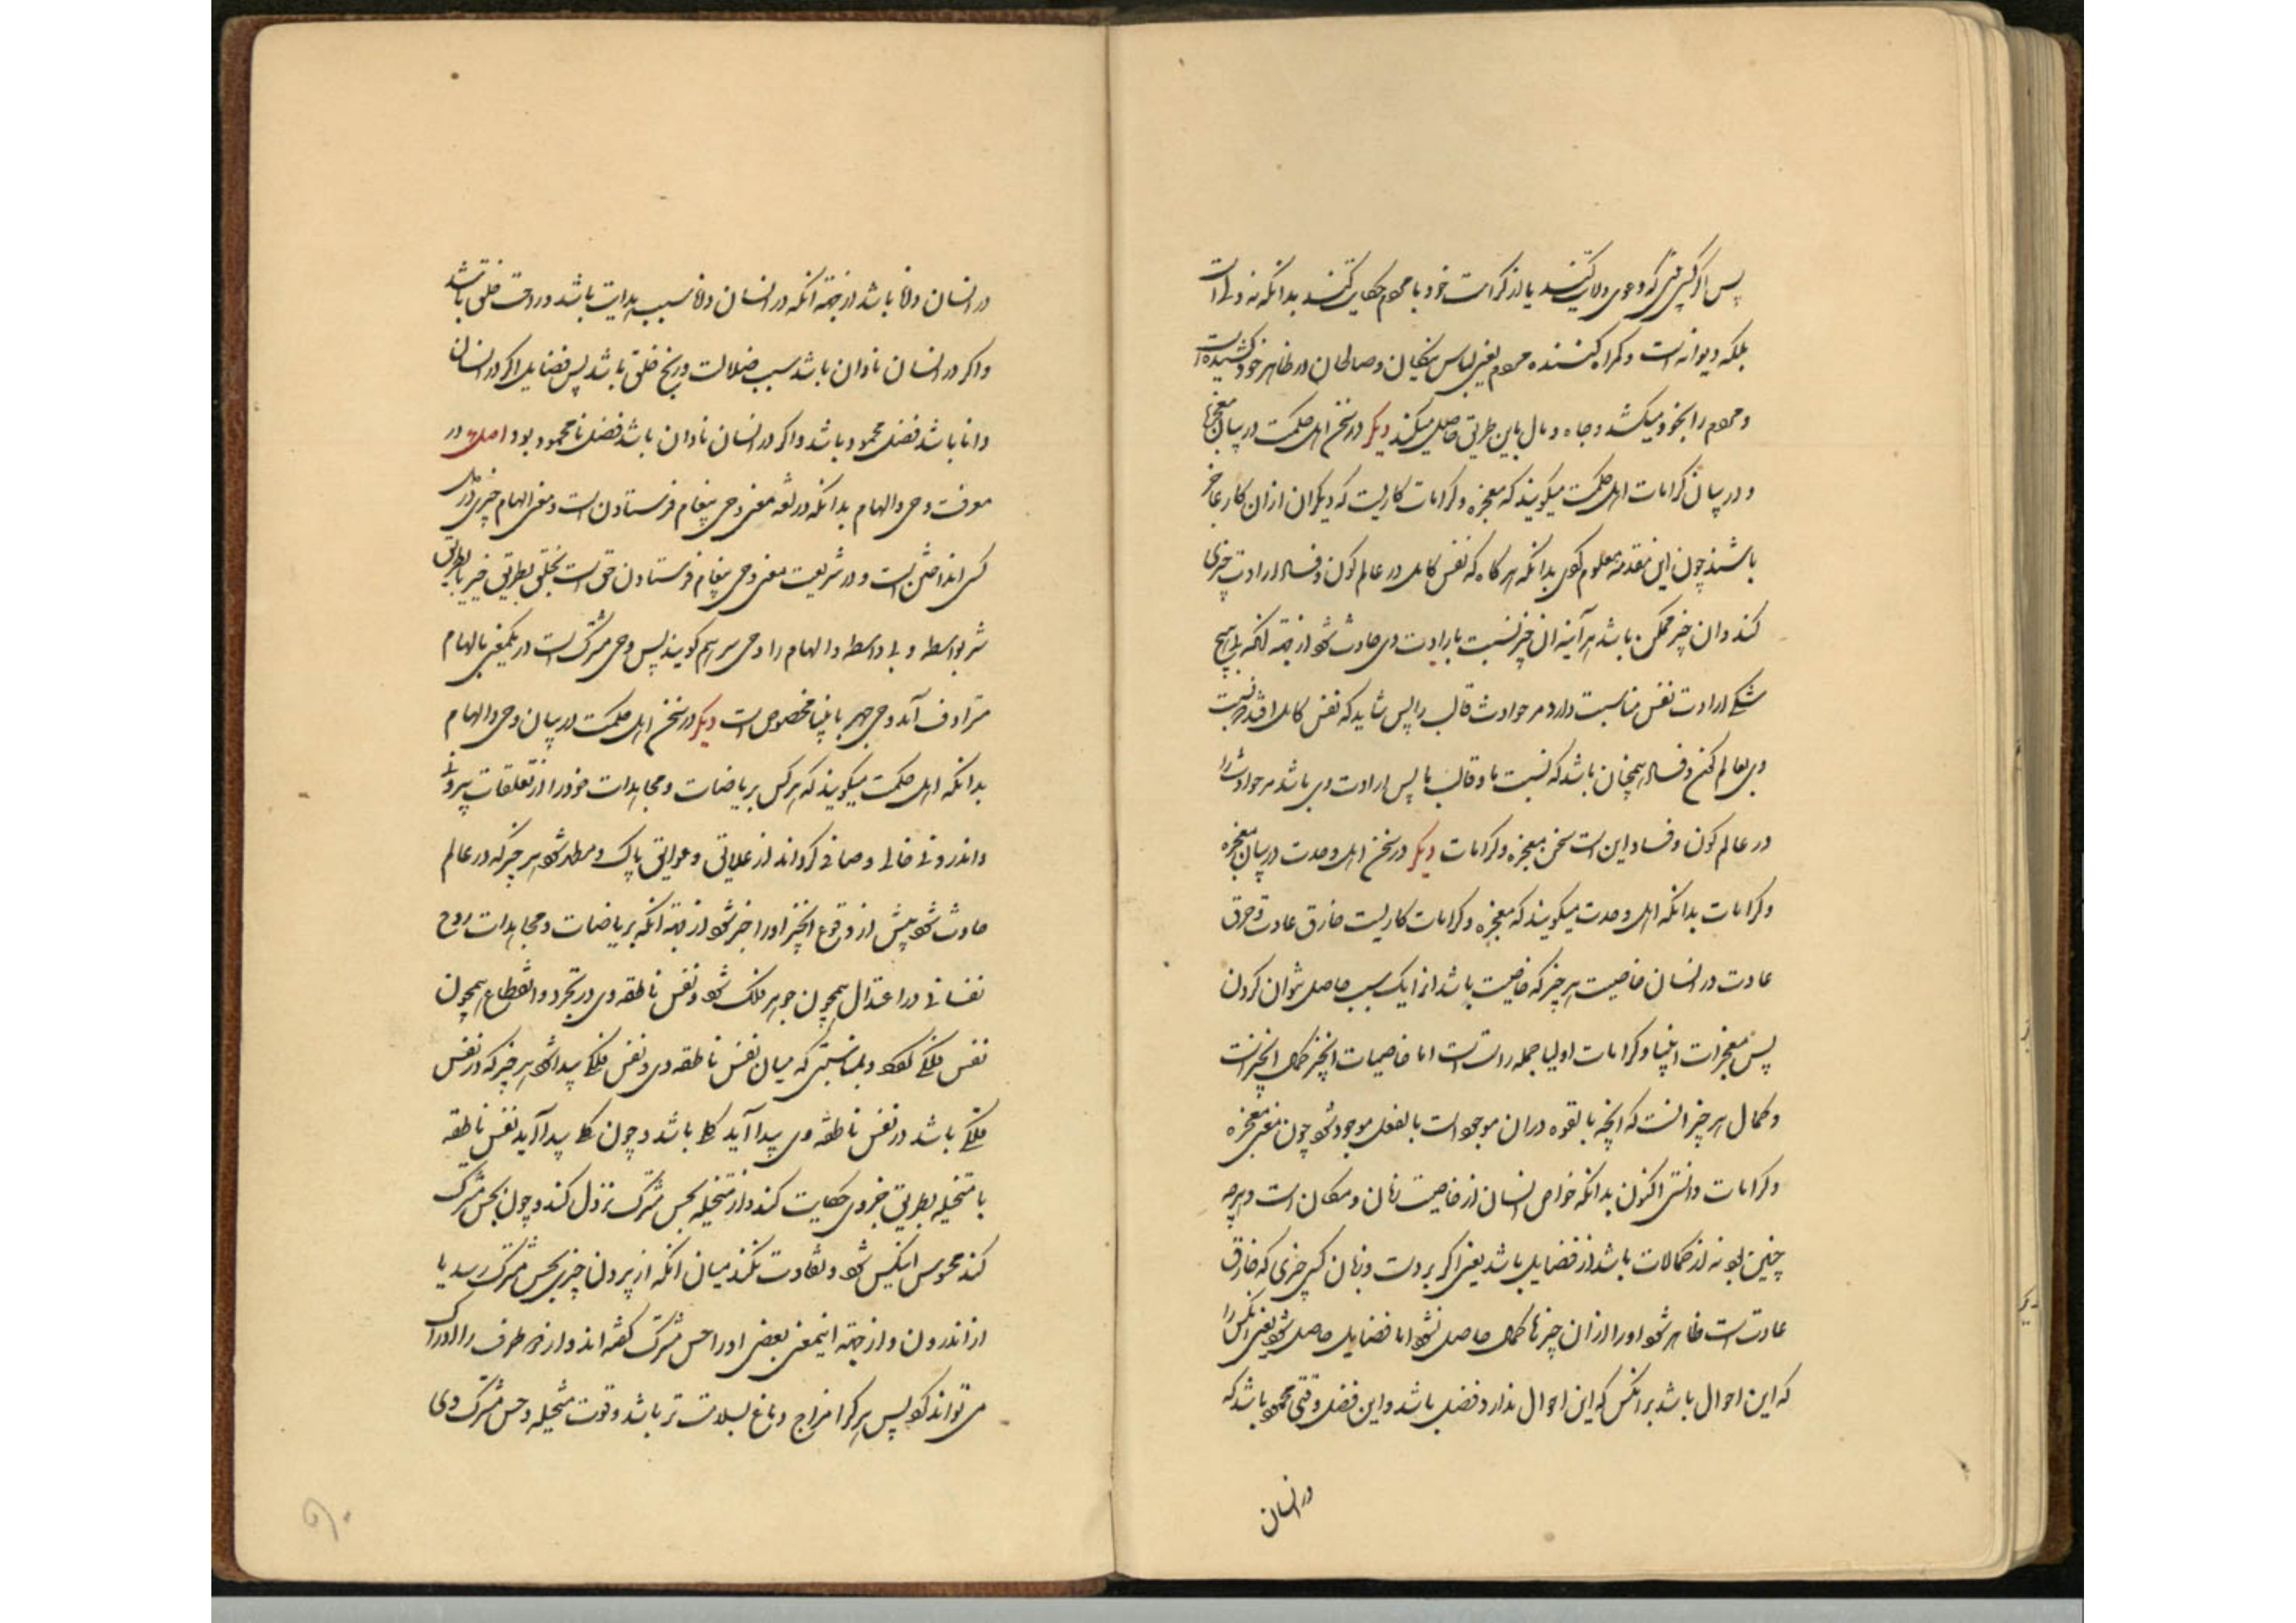 پس اگر کسی بینی که دعوی ولایت کند یا از کرامت خود با مردم حکایت کند بدانکه نه ولی است
بلکه دیوانه است و گمراه کننده مردم یعنی لباس نیکان و صالحان در ظاهر خود کشیده است
و مردم را بخود میکشد و جاه و مال باین طریق حاصل میکند دیگر در سخن اهل حکمت در بیان معجزها
و در بیان کرامات اهل حکمت میگویند که معجزه و کرامات کاریست که دیگران ازان کار عاجز
باشند چون این مقدمه معلوم کردی بدانکه هرگاه که نفس کامل در عالم کون و فساد ارادت چیزی
کند و ان چیز ممکن باشد هر آینه ان چیز نسبت بارادت وی حادث شود از جهة آنکه بی هیچ
شکی ارادت نفس مناسبت دارد مر حوادث قالب را پس شاید که نفس کامل افتد نسبت
وی بعالم کون و فساد همچنان باشد که نسبت ما و قالب ما پس ارادت وی باشد مر حوادث را
در عالم کون و فساد این است سخن معجزه و کرامات دیگر در سخن اهل وحدت در بیان معجزه
و کرامات بدانکه اهل وحدت میگویند که معجزه و کرامات کاریست خارق عادت و خرق
عادت در انسان خاصیت هر چیز که خاصیت باشد انرا بیک سبب حاصل نتوان کردن
پس معجزات انبیا و کرامات اولیا جمله راست است اما خاصیات آنچیز کمال آنچیز است
و کمال هر چیز انست که آنچه بالقوه دران موجود است بالفعل موجود شود چون معنی معجزه
و کرامات دانستی اکنون بدانکه خواص انسان از خاصیت زمان و مکان است و هرچه
چنین بود نه از کمالات باشد از فضایل باشد یعنی اگر بر دست و زبان کسی چیزی که خارق
عادت است ظاهر شود او را ازان چیزها کمال حاصل نشود اما فضایل حاصل شود یعنی آنکس را
که این احوال باشد بر انکس که این احوال ندارد فضل باشد و این فضل وقتی محمود باشد که
در انسان
در انسان دانا باشد از جهة آنکه در انسان دانا سبب هدایت باشد و راحت خلق باشد
و اگر در انسان نادان باشد سبب ضلالت و رنج خلق باشد پس فضایل اگر در انسان
دانا باشد فضل محمود باشد و اگر در انسان نادان باشد فضل نامحمود بود اصل در
معرفت وحی و الهام بدانکه در لغة معنی وحی پیغام فرستادن است و معنی الهام چیزی در دل
کسی انداختن است و در شریعت معنی وحی پیغام فرستادن حق است بخلق بطریق خیر یا بطریق
شر بواسطه و بی واسطه و الهام را وحی سر هم گویند پس وحی مشترک است در یکمعنی با الهام
مترادف آمد وحی جهر بانبیا مخصوص است دیگر در سخن اهل حکمت در بیان وحی و الهام
بدانکه اهل حکمت میگویند که هر کس بریاضات و مجاهدات خود را از تعلقات بیرونی
و اندرونی خالی و صافی گرداند از علایق و عوایق پاک و مطهر شود هر چیز که در عالم
حادث شود پیش از وقوع آنچیز او را خبر شود از جهة آنکه بریاضات و مجاهدات روح
نفسانی در اعتدال همچون جوهر فلک شود و نفس ناطقه وی در تجرد و انقطاع همچون
نفس فلکی گردد و بمناسبتی که میان نفس ناطقه وی و نفس فلکی پیدا شود هر چیز که در نفس
فلکی باشد در نفس ناطقه وی پیدا آید کلی باشد و چون کلی پیدا آید نفس ناطقه
با متخیله بطریق جزوی حکایت کند و از متخیله بحس مشترک نزول کند و چون بحس مشترک
کند محسوس انکس شود و تفاوت نکند میان آنکه از برون چیزی بحس مشترک رسد یا
از اندرون و از جهة اینمعنی بعضی او را حس مشترک گفته اند و از هر دو طرف را ادراک
می تواند کرد پس هر کرا مزاج دماغ بسلامت تر باشد و قوت متخیله و حس مشترک وی